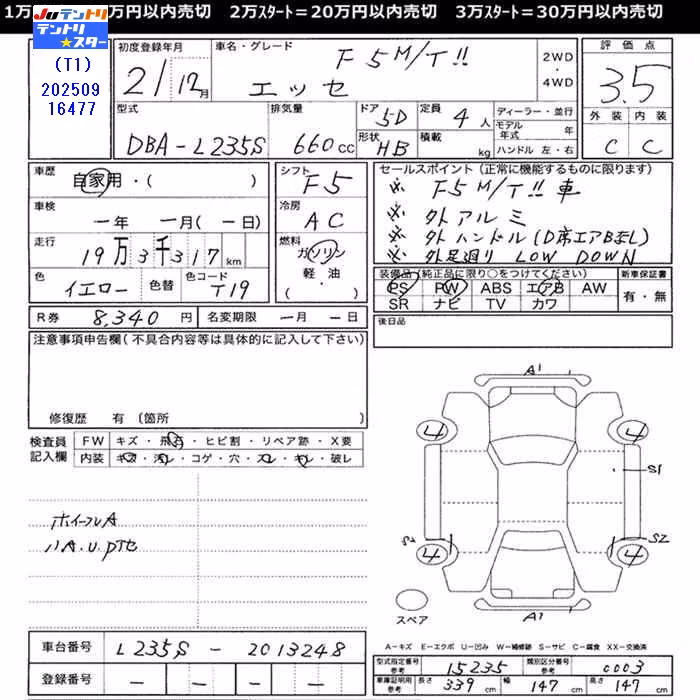 1万 万円以内売切 2万スタート＝20万円以内売切 3万スタート＝30万円以内売切
Juテントリ
テントリスター
(T1)
202509
16477
初度登録年月
21/12月
車名・グレード
F 5M/T!!
エッセ
2WD
・
4WD
評価点
3.5
外装 内装
C C
型式
DBA-L235S
排気量
660cc
ドア 5D
形状 HB
定員 4人
積載 kg
ディーラー・並行
モデル年式 年
ハンドル 左・右
車歴
自家用・( )
車検
－年 －月(－日)
走行
19万3千317km
色
イエロー
色替
色コード
T19
シフト
F5
冷房
AC
燃料
ガソリン
軽・油
( )
セールスポイント(正常に機能するものに限ります)
※ F5 M/T!! 車
※ 外アルミ
※ 外ハンドル(D席エアBなし)
※ 外足廻り LOW DOWN
装備品(純正品に限り○をつけてください)
PS PW ABS エアB AW
SR ナビ TV カワ
新車保証書
有・無
R券 8,340円
名変期限 －月 －日
後日品
注意事項申告欄(不具合内容等は具体的に記入して下さい)
修復歴 有 (箇所 )
検査員記入欄
FW キズ・飛石・ヒビ割・リペア跡・X要
内装 キズ・汚レ・コゲ・穴・スレ・キレ・破レ
ホイールA
ハA.U.PTヒ
A1
4 4
S1
S2 S2
4 4
A1
スペア
A－キズ E－エクボ U－凹み W－補修跡 S－サビ C－腐食 XX－交換済
車台番号 L235S - 2013248
登録番号 － － － －
型式指定番号 参考 15235
類別区分番号 参考 0003
車庫証明用 参考 長さ 339cm 幅 147cm 高さ 147cm